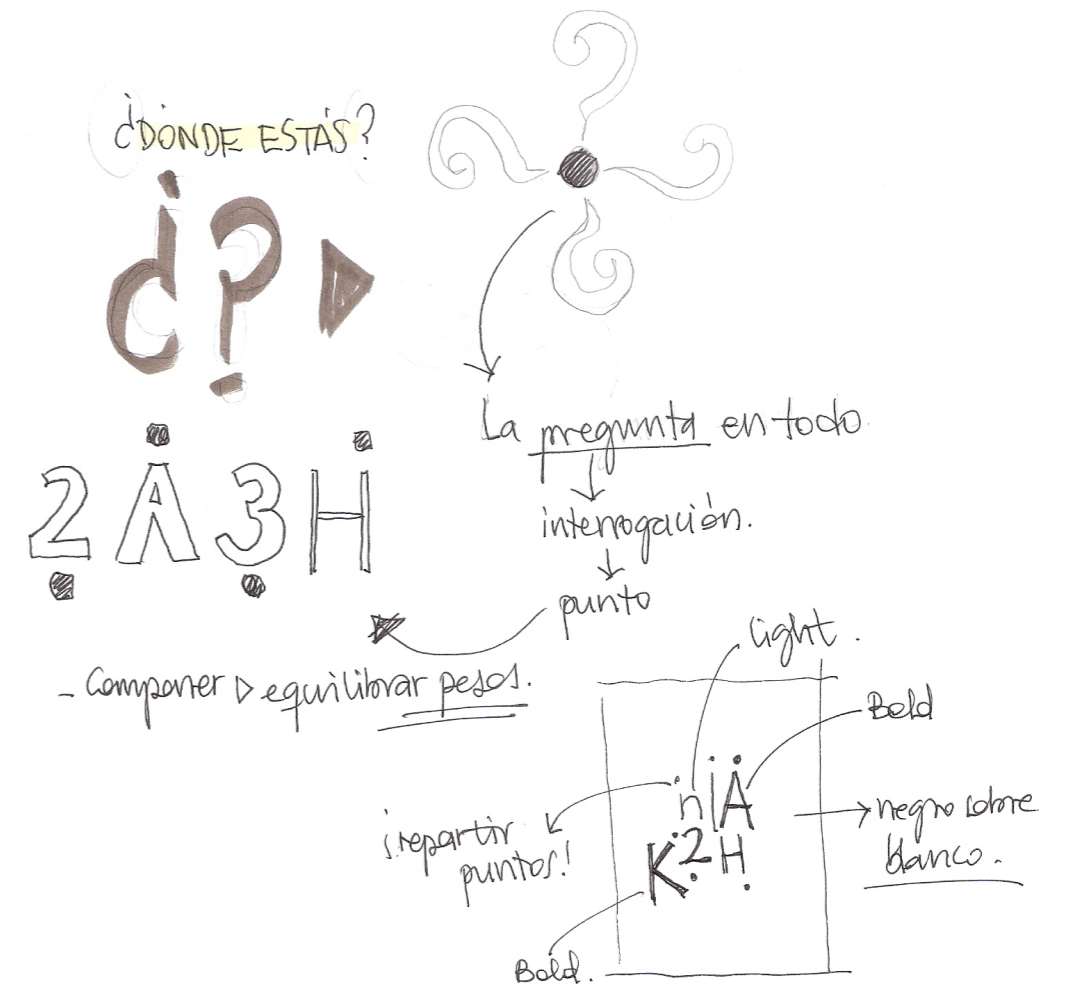 ¿DÓNDE ESTÁS?
¿?
La pregunta en todo
interrogación.
punto
2 A 3 H
- Componer ▷ equilibrar pesos.
light.
Bold
n i A
K 2 H
¡repartir
puntos!
negro sobre
blanco.
Bold.